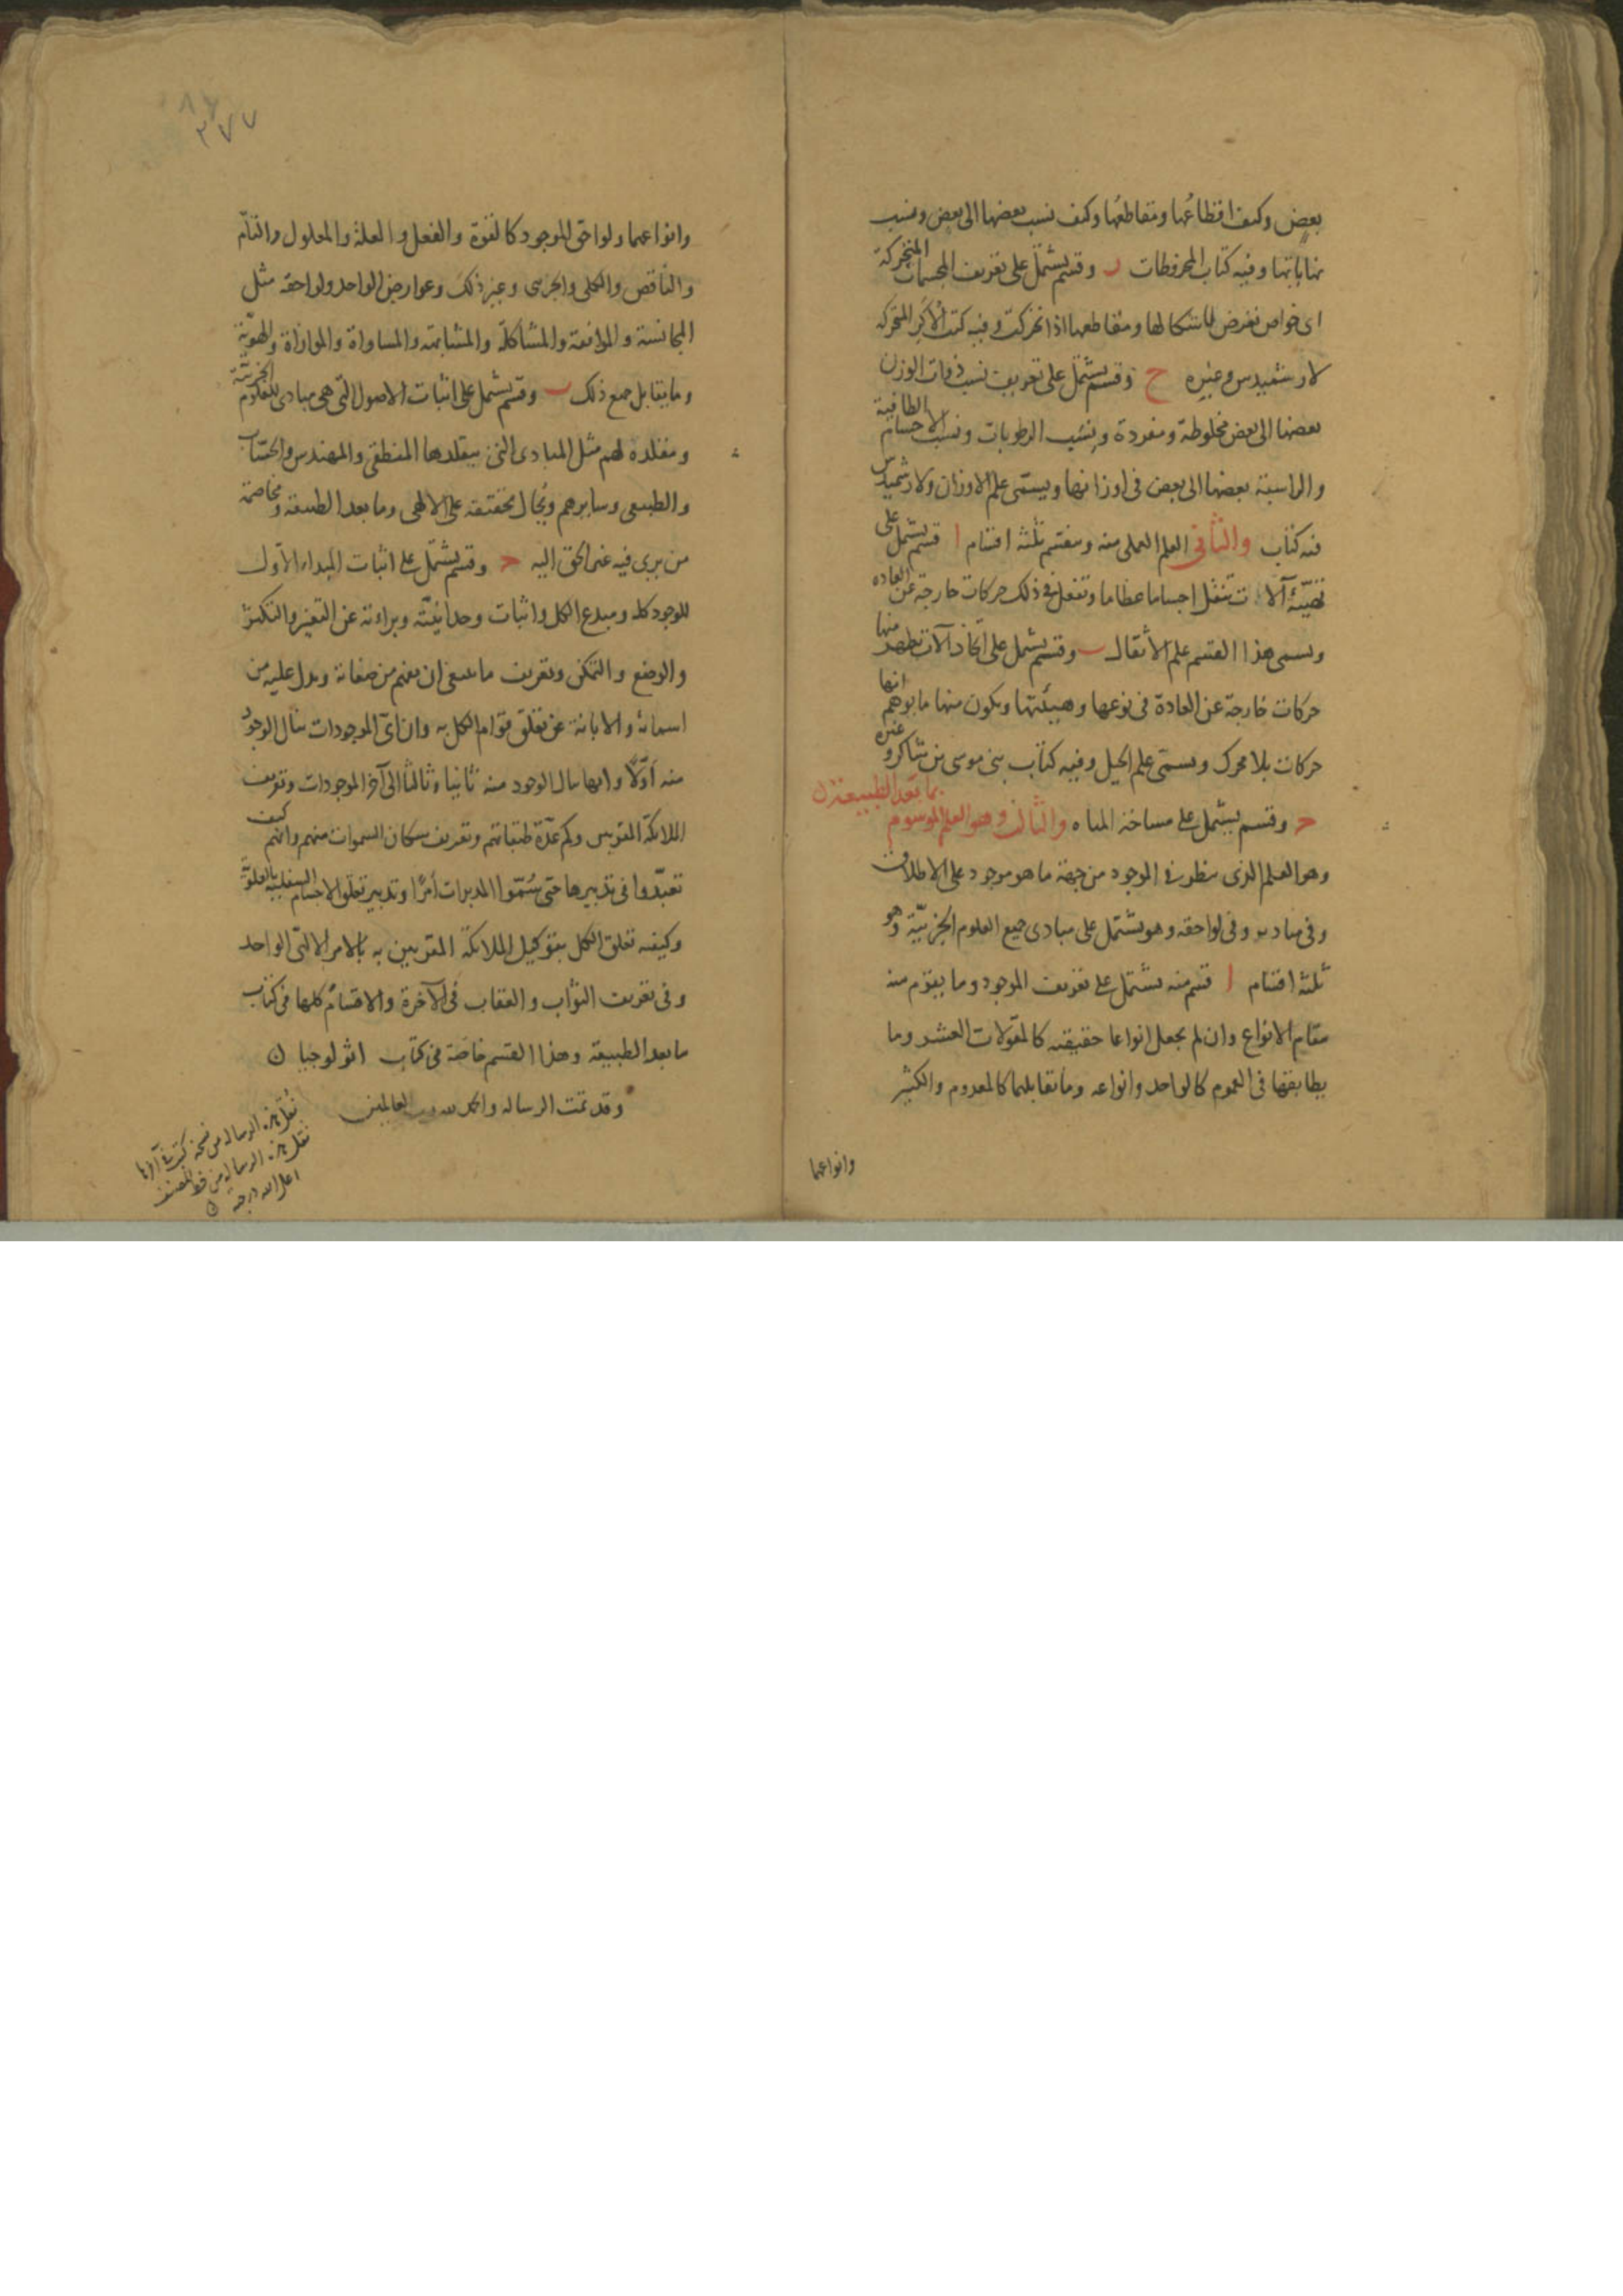 بعض وكيف اقطاعها ومقاطعها وكيف نسب بعضها الى بعض ونسب
نهاياتها وفيه كتاب المخروطات ر وقسم يشتمل على تعريف المجسمات المتحركة
اى خواص تعرض لاشكالها ومقاطعها اذا تحركت وفيه كتب الأكر المتحركة
لارشميدس وغيره ح وقسم يشتمل على تعريف نسب ذوات الوزن
بعضها الى بعض مخلوطة ومفردة ونسب الرطوبات ونسب الاجسام الطافية
والراسبة بعضها الى بعض فى اوزانها ويسمى علم الاوزان ولارشميدس
فيه كتاب والثانى العلم العملى منه وينقسم ثلثة اقسام ا قسم يشتمل على
تهيئة آلات تنقل اجساما عظاما وتفعل فى ذلك حركات خارجة عن العادة
ويسمى هذا القسم علم الأثقال ب وقسم يشتمل على اتخاذ آلات تظهر منها
حركات خارجة عن العادة فى نوعها وهيئتها ويكون منها ما يوهم انها
حركات بلا محرك ويسمى علم الحيل وفيه كتاب بنى موسى بن شاكر وغيره
ح وقسم يشتمل على مساحة المياه والثالث وهو العلم الموسوم بما بعد الطبيعة
وهو العلم الذى ينظر فى الموجود من جهة ما هو موجود على الاطلاق
وفى مباديه وفى لواحقه وهو يشتمل على مبادى جميع العلوم الجزئية وهو
ثلثة اقسام ا قسم منه يشتمل على تعريف الموجود وما يقوم منه
مقام الانواع وان لم يجعل انواعا حقيقية كالمقولات العشر وما
يطابقها فى العموم كالواحد وانواعه وما تقابلهما كالمعدوم والكثير
وانواعهما
٢٧٧
وانواعهما ولواحق الموجود كالقوة والفعل والعلة والمعلول والتام
والناقص والكلى والجزئى وغير ذلك وعوارض الواحد ولواحقه مثل
المجانسة والموافقة والمشاكلة والمشابهة والمساواة والموازاة والهوية
وما يقابل جميع ذلك ب وقسم يشتمل على اثبات الاصول التى هى مبادى للعلوم الجزئية
ومقلدة لهم مثل المبادى التى يتقلدها المنطقى والمهندس والحساب
والطبيعى وسايرهم ويحال بحقيقته على الالهى وما بعد الطبيعة ومخاصمة
من يرى فيه غير الحق اليه ح وقسم يشتمل على اثبات المبداء الأول
للوجود كله ومبدع الكل واثبات وحدانيته وبراءته عن التغير والتكثر
والوضع والتمكن وتعريف ما ينبغى ان يفهم من صفاته ويدل عليه من
اسمائه والابانة عن تعلق قوام الكل به وان اى الموجودات ينال الوجود
منه أولا وايها ينال الوجود منه ثانيا وثالثا الى آخر الموجودات وتعريف
الملائكة المقربين وكم عدة طبقاتهم وتعريف سكان السموات منهم وانهم كيف
تعبدوا فى تدبيرها حتى سموا المدبرات أمرا وتدبير تعلق الاجسام السفلية بالعلوية
وكيفية تعلق الكل بتوكيل الملائكة المقربين به بالامر الالهى الواحد
وفى تعريف الثواب والعقاب فى الآخرة والاقسام كلها فى كتاب
ما بعد الطبيعة وهذا القسم خاصة فى كتاب اثولوجيا ن
وقد تمت الرساله والحمد لله رب العالمين
نقل هذه الرساله من نسخة كتب فى آخرها
نقل هذه الرساله من خط المصنف
اعلى الله درجته ن